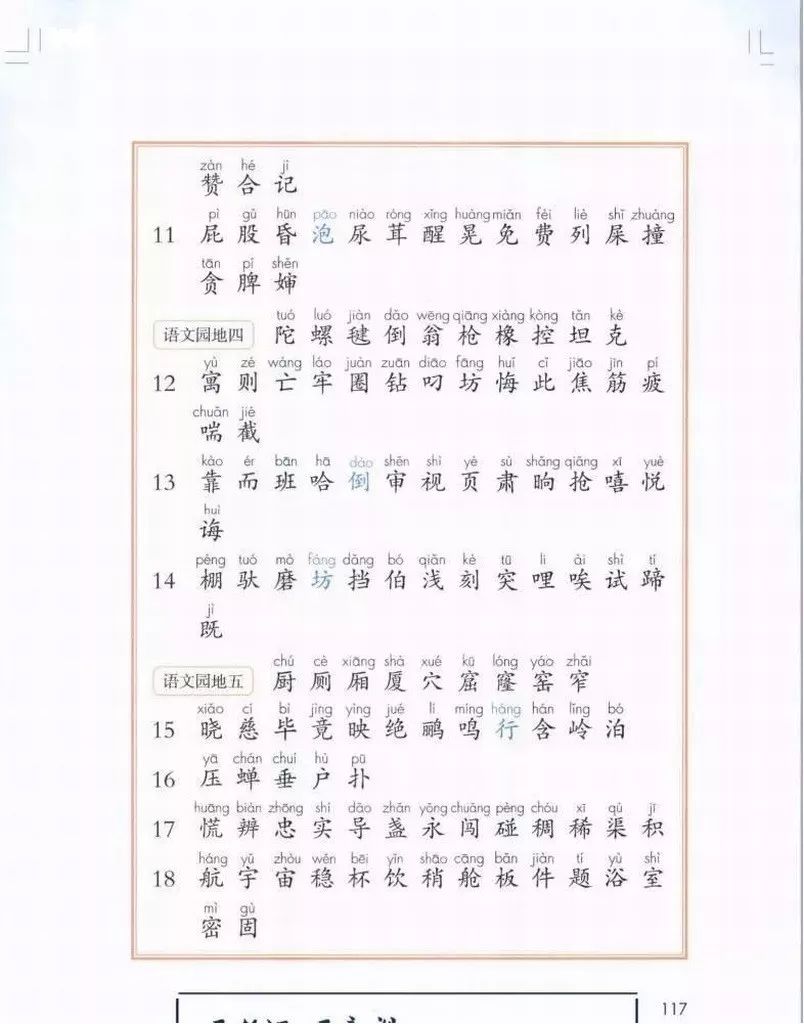 zàn hé jì
赞 合 记
pì gǔ hūn pāo niào róng xǐng huàng miǎn fèi liè shǐ zhuàng
11 屁 股 昏 泡 尿 茸 醒 晃 免 费 列 屎 撞
tān pí shěn
贪 脾 婶
tuó luó jiàn dǎo wēng qiāng xiàng kòng tǎn kè
语文园地四 陀 螺 毽 倒 翁 枪 橡 控 坦 克
yù zé wáng láo juàn zuān diāo fāng huǐ cǐ jiāo jīn pí
12 寓 则 亡 牢 圈 钻 叼 坊 悔 此 焦 筋 疲
chuǎn jié
喘 截
kào ér bān hā dào shěn shì yè sù shǎng qiǎng xī yuè
13 靠 而 班 哈 倒 审 视 页 肃 晌 抢 嘻 悦
huì
诲
péng tuó mò fáng dǎng bó qiǎn kè tū li ài shì tí
14 棚 驮 磨 坊 挡 伯 浅 刻 突 哩 唉 试 蹄
jì
既
chú cè xiāng shà xué kū lóng yáo zhǎi
语文园地五 厨 厕 厢 厦 穴 窟 窿 窑 窄
xiǎo cí bì jìng yìng jué lí míng háng hán lǐng bó
15 晓 慈 毕 竟 映 绝 鹂 鸣 行 含 岭 泊
yā chán chuí hù pū
16 压 蝉 垂 户 扑
huāng biàn zhōng shí dǎo zhǎn yǒng chuǎng pèng chóu xī qú jī
17 慌 辨 忠 实 导 盏 永 闯 碰 稠 稀 渠 积
háng yǔ zhòu wěn bēi yǐn shāo cāng bǎn jiàn tí yù shì
18 航 宇 宙 稳 杯 饮 稍 舱 板 件 题 浴 室
mì gù
密 固
117